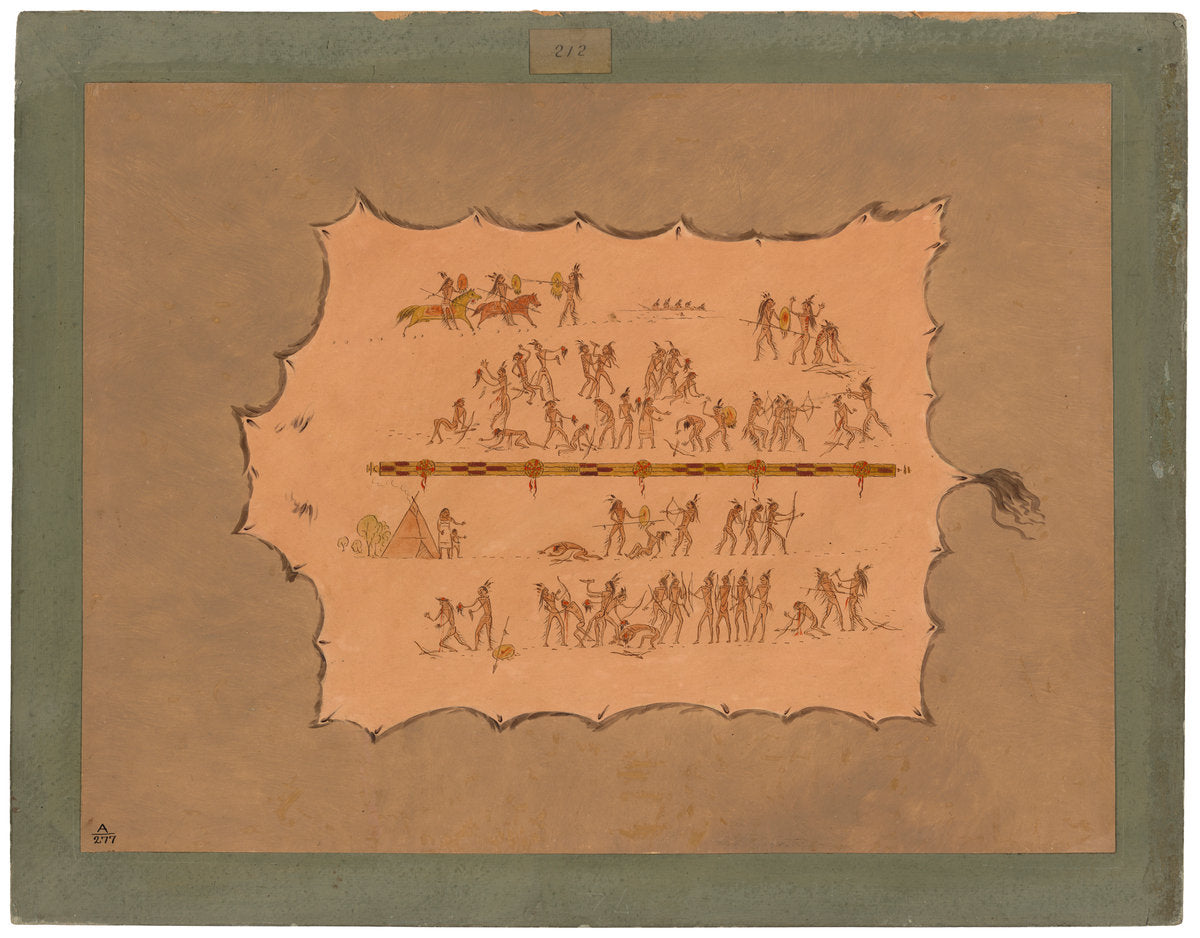 212
A
277